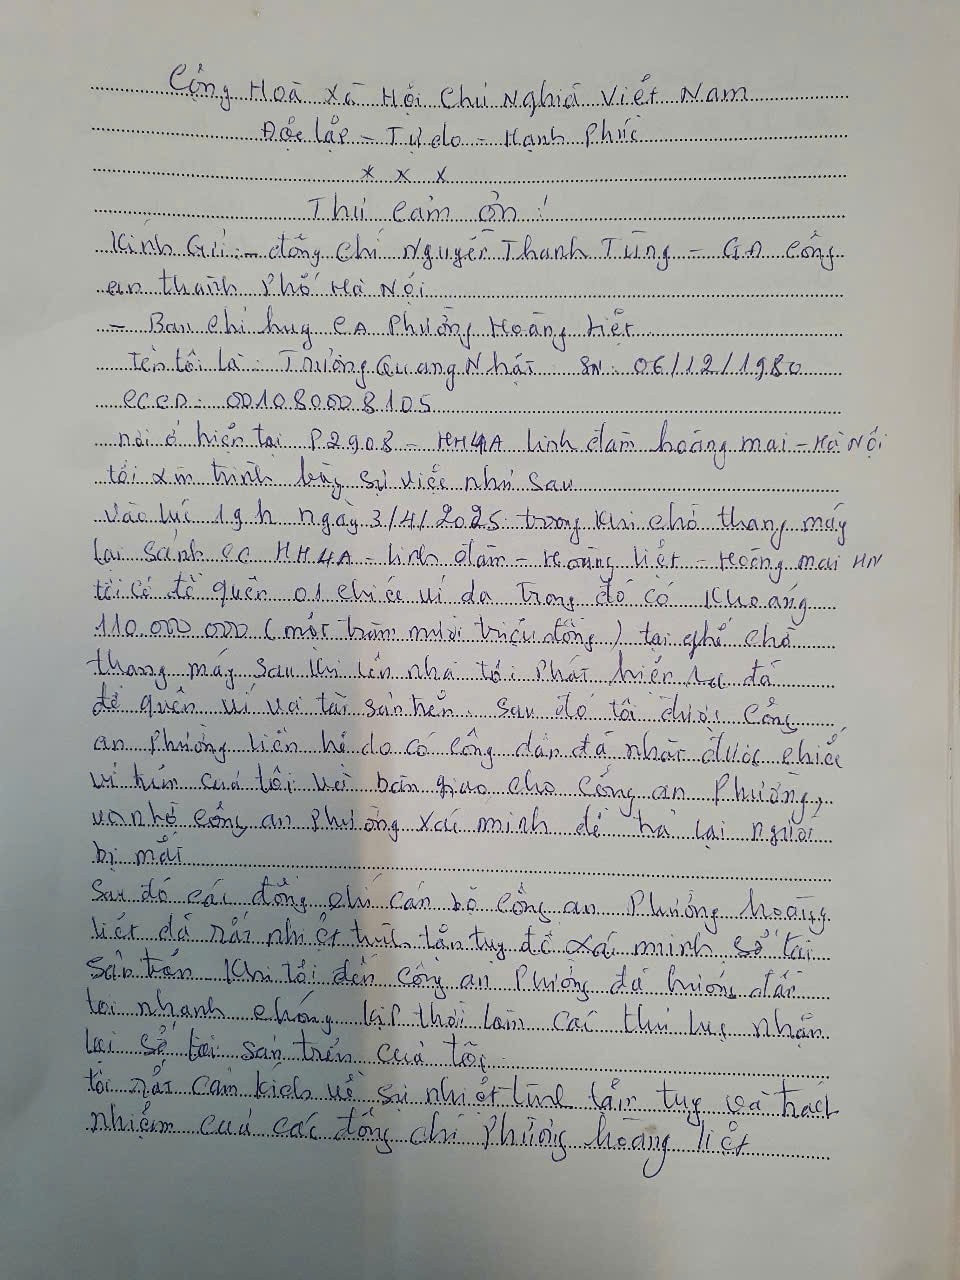 Cộng Hoà Xã Hội Chủ Nghĩa Việt Nam
Độc lập - Tự do - Hạnh Phúc
* x x
Thư cảm ơn!
Kính Gửi: - đồng Chí Nguyễn Thanh Tùng - GĐ công
an thành Phố Hà Nội
- Ban chỉ huy CA Phường Hoàng Liệt
Tên tôi là: Trương Quang Nhật SN: 06/12/1980
CCCD: 001080008105
nơi ở hiện tại P2908 - HH4A linh đàm hoàng mai - Hà Nội
tôi xin trình bày sự việc như sau
Vào lúc 19h ngày 3/4/2025 trong khi chờ thang máy
tại sảnh cc HH4A - linh đàm - Hoàng liệt - Hoàng mai HN
tôi có để quên 01 chiếc ví da Trong đó có Khoảng
110.000.000 (một trăm mười triệu đồng) tại ghế chờ
thang máy sau khi lên nhà tôi phát hiện đã
để quên ví và tài sản trên. Sau đó tôi được Công
an phường liên hệ do có công dân đã nhặt được chiếc
ví trên của tôi và bàn giao cho Công an Phường,
và nhờ công an phường xác minh để trả lại người
bị mất
Sau đó các đồng chí cán bộ công an Phường hoàng
liệt đã rất nhiệt tình tận tụy để xác minh số tài
sản trên Khi tôi đến công an Phường đã hướng dẫn
tôi nhanh chóng kịp thời làm các thủ tục nhận
lại số tài sản trên của tôi.
tôi rất cảm kích về sự nhiệt tình tận tụy và trách
nhiệm của các đồng chí Phường hoàng liệt